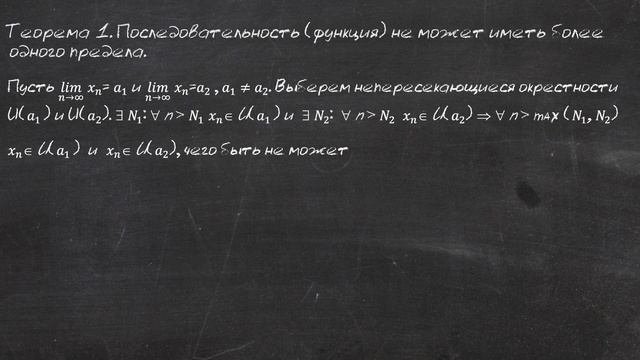 Теорема 1. Последовательность (функция) не может иметь более
одного предела.
Пусть lim x_n = a_1 и lim x_n = a_2 , a_1 ≠ a_2. Выберем непересекающиеся окрестности
n→∞ n→∞
U(a_1) и U(a_2). ∃ N_1: ∀ n > N_1 x_n ∈ U(a_1) и ∃ N_2: ∀ n > N_2 x_n ∈ U(a_2) ⇒ ∀ n > max(N_1, N_2)
x_n ∈ U(a_1) и x_n ∈ U(a_2), чего быть не может